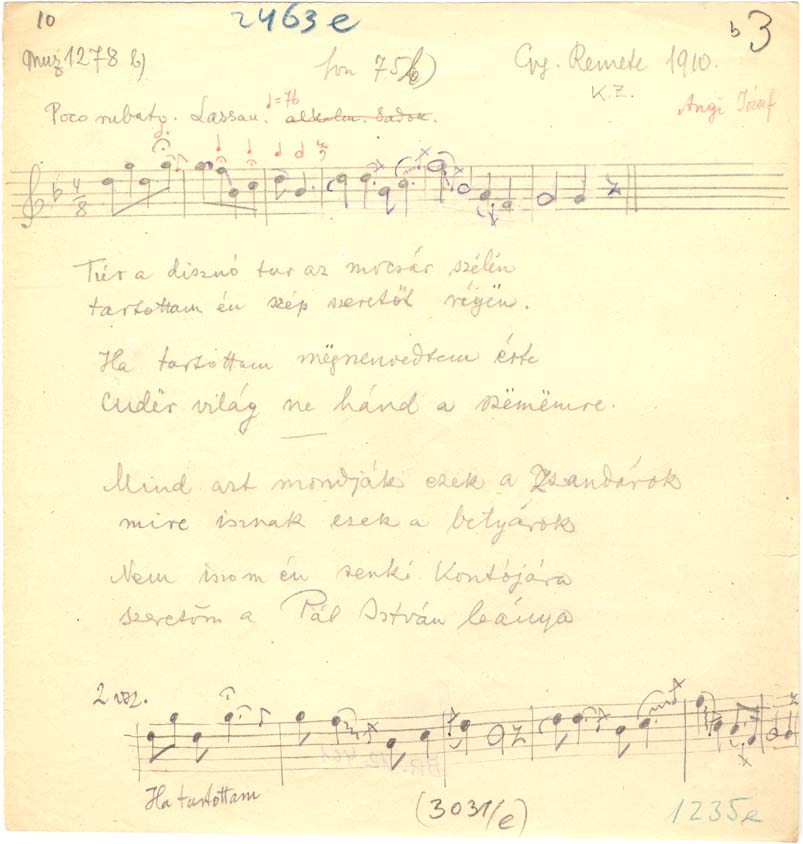 10 2463e b 3
Muz 1278 b) fon 75/b) Gyg. Remete 1910.
K.Z.
Angi József
Poco rubato. Lassan. ♩=76
4/8
Túr a disznó tur az mocsár szélén
tartottam én szép szeretőt régën.
Ha tartottam mëgnenvedtem érte
Cudër világ ne hánd a szëmëmre.
Mind azt mondják ezek a Zsandárok
mire isznak ezek a betyárok
Nem iszom én senki Kontójára
szeretőm a Pál István leánya
2 vsz.
Ha tartottam
(3031/e) 1235e